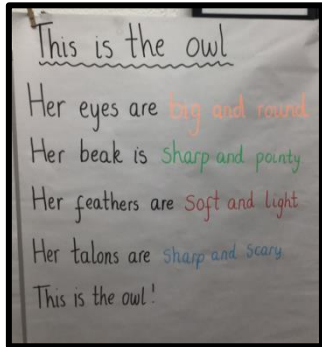 This is the owl
Her eyes are big and round
Her beak is sharp and pointy
Her feathers are soft and light
Her talons are sharp and scary
This is the owl!